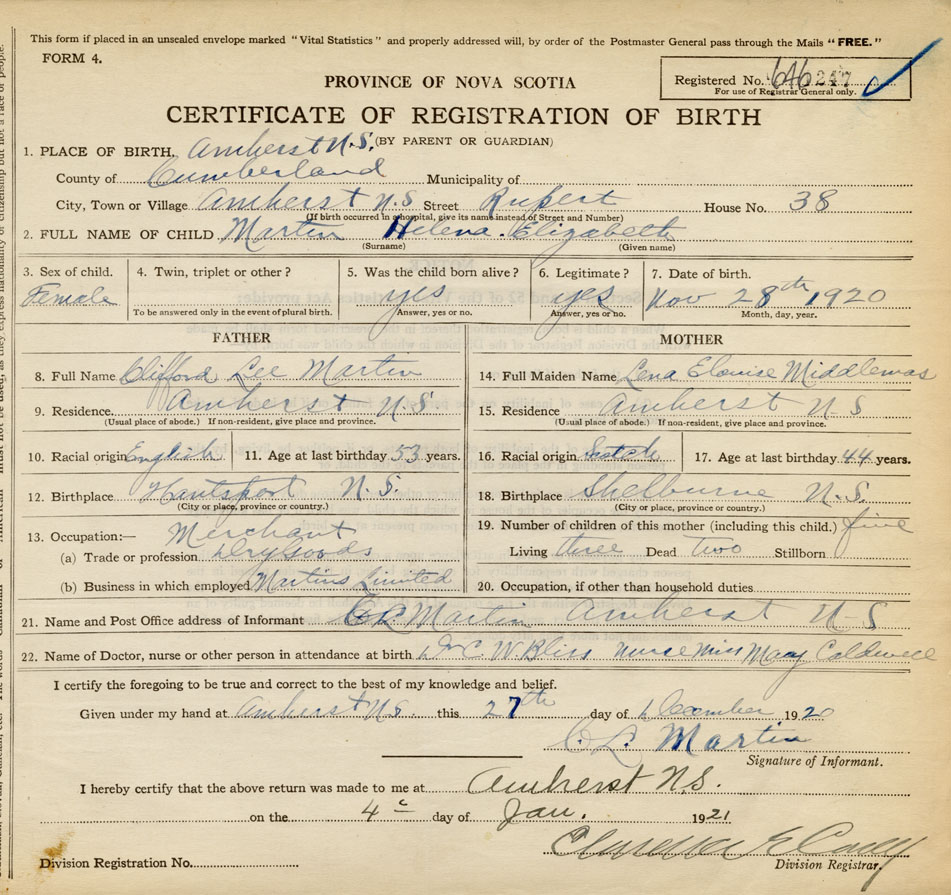 This form if placed in an unsealed envelope marked "Vital Statistics" and properly addressed will, by order of the Postmaster General pass through the Mails "FREE."
FORM 4.
Registered No. 646 247
For use of Registrar General only.
PROVINCE OF NOVA SCOTIA
CERTIFICATE OF REGISTRATION OF BIRTH
(BY PARENT OR GUARDIAN)
1. PLACE OF BIRTH, Amherst N.S.
County of Cumberland Municipality of
City, Town or Village Amherst N S Street Rupert House No. 38
(If birth occurred in a hospital, give its name instead of Street and Number)
2. FULL NAME OF CHILD Martin Helena Elizabeth
(Surname) (Given name)
3. Sex of child. 4. Twin, triplet or other? 5. Was the child born alive? 6. Legitimate? 7. Date of birth.
Female yes yes Nov 28th 1920
To be answered only in the event of plural birth. Answer, yes or no. Answer, yes or no. Month, day, year.
FATHER MOTHER
8. Full Name Clifford Lee Martin 14. Full Maiden Name Lena Elouise Middlemas
9. Residence. Amherst N S 15. Residence Amherst N S
(Usual place of abode.) If non-resident, give place and province. (Usual place of abode.) If non-resident, give place and province.
10. Racial origin English 11. Age at last birthday 53 years. 16. Racial origin Scotch 17. Age at last birthday 44 years.
12. Birthplace Hantsport N.S. 18. Birthplace Shelburne N.S.
(City or place, province or country.) (City or place, province or country.)
13. Occupation:— Merchant 19. Number of children of this mother (including this child.) five
(a) Trade or profession Drygoods Living three Dead two Stillborn
(b) Business in which employed Martins Limited 20. Occupation, if other than household duties
21. Name and Post Office address of Informant C L Martin Amherst N-S
22. Name of Doctor, nurse or other person in attendance at birth Dr C. W. Bliss nurse Miss Mary Coldwell
I certify the foregoing to be true and correct to the best of my knowledge and belief.
Given under my hand at Amherst N.S. this 27th day of December 1920
C. L. Martin
Signature of Informant.
I hereby certify that the above return was made to me at Amherst N.S.
on the 4 day of Jan. 1921
Division Registration No. Division Registrar.